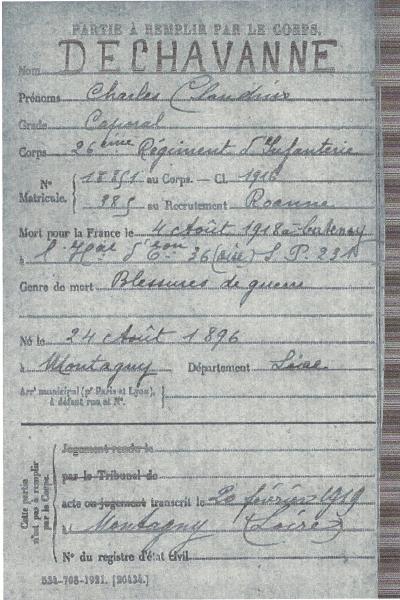 PARTIE À REMPLIR PAR LE CORPS.
Nom DECHAVANNE
Prénoms Charles Claudius
Grade Caporal
Corps 26ème Régiment d'Infanterie
N° Matricule. { 18851 au Corps. — Cl. 1916
985 au Recrutement Roanne
Mort pour la France le 4 Août 1918 à
à l'Hôal d'Eon 36 (oise) S. P. 231
Genre de mort Blessures de guerre
Né le 24 Août 1896
à Montagny Département Loire
Arrt municipal (pr Paris et Lyon), à défaut rue et N°.
Cette partie n'est pas à remplir par le Corps.
Jugement rendu le
par le Tribunal de
acte ou jugement transcrit le 20 février 1919
à Montagny (Loire)
N° du registre d'état civil
534-708-1921. [26434.]